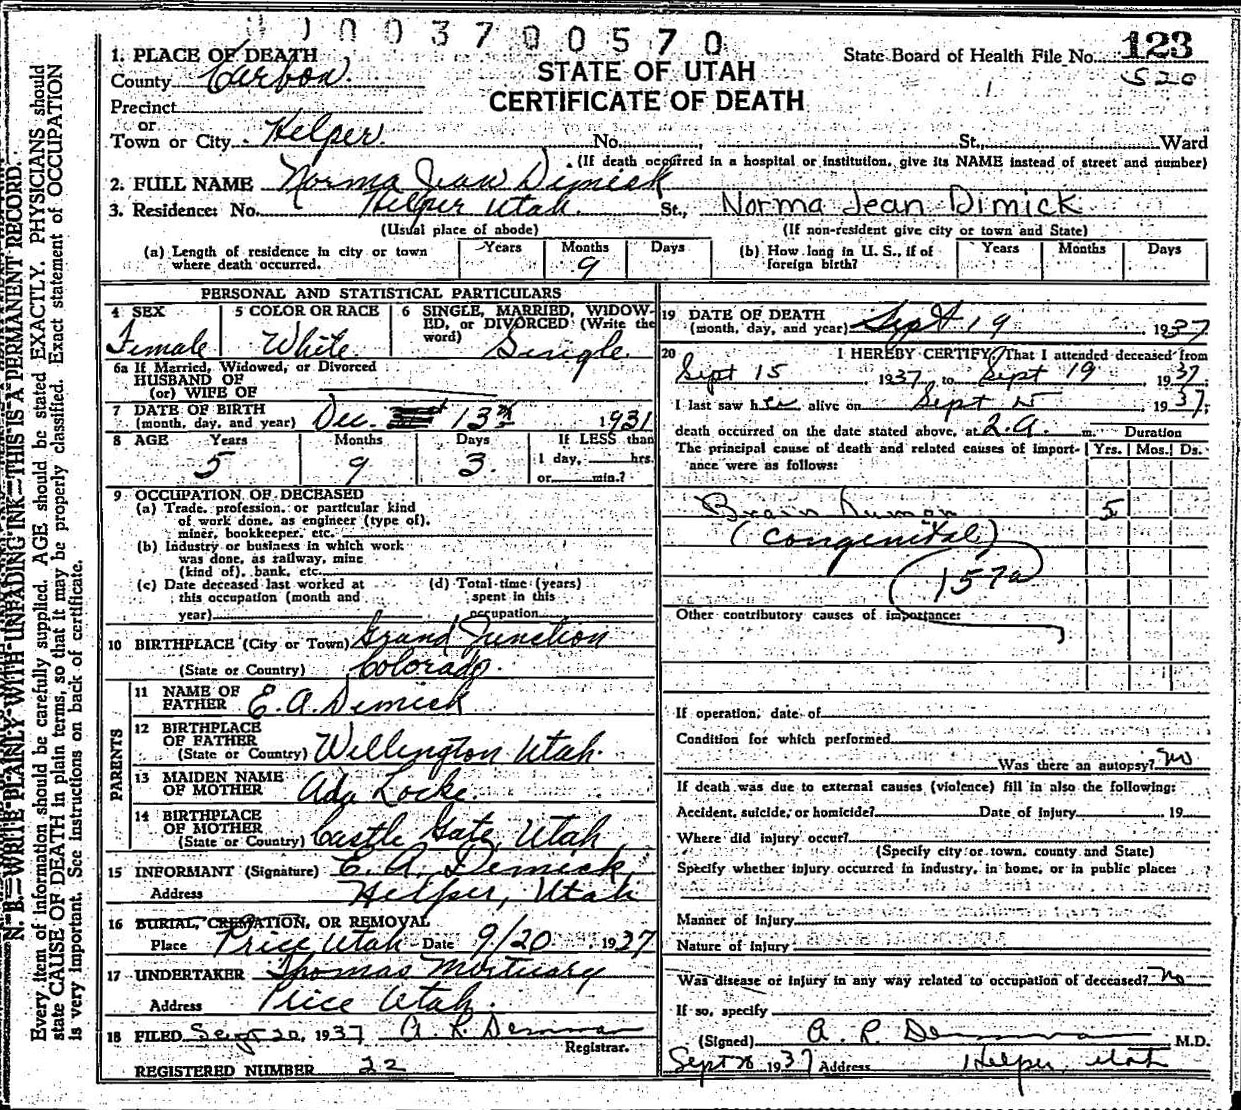 1003700570
1. PLACE OF DEATH
County Carbon
State Board of Health File No. 123
520
STATE OF UTAH
CERTIFICATE OF DEATH
Precinct
or
Town or City Helper No. , St., Ward
(If death occurred in a hospital or institution, give its NAME instead of street and number)
2. FULL NAME Norma Jean Dimick
3. Residence: No. Helper Utah St., Norma Jean Dimick
(Usual place of abode) (If non-resident give city or town and State)
(a) Length of residence in city or town where death occurred. Years Months 9 Days
(b) How long in U. S., if of foreign birth? Years Months Days
PERSONAL AND STATISTICAL PARTICULARS
4 SEX Female
5 COLOR OR RACE White
6 SINGLE, MARRIED, WIDOWED, or DIVORCED (Write the word) Single
6a If Married, Widowed, or Divorced
HUSBAND OF
(or) WIFE OF
7 DATE OF BIRTH
(month, day, and year) Dec. 13th 1931
8 AGE Years 5 Months 9 Days 3
If LESS than
1 day, hrs.
or min.?
9 OCCUPATION OF DECEASED
(a) Trade, profession, or particular kind
of work done, as engineer (type of),
miner, bookkeeper, etc.
(b) Industry or business in which work
was done, as railway, mine
(kind of), bank, etc.
(c) Date deceased last worked at
this occupation (month and
year)
(d) Total time (years)
spent in this
occupation
10 BIRTHPLACE (City or Town) Grand Junction
(State or Country) Colorado.
PARENTS
11 NAME OF
FATHER E. A. Dimick
12 BIRTHPLACE
OF FATHER
(State or Country) Wellington Utah.
13 MAIDEN NAME
OF MOTHER Ada Locke.
14 BIRTHPLACE
OF MOTHER
(State or Country) Castle Gate, Utah
15 INFORMANT (Signature) E. A. Dimick
Address Helper, Utah
16 BURIAL, CREMATION, OR REMOVAL
Place Price Utah Date 9/20 1937
17 UNDERTAKER Thomas Mortuary
Address Price Utah.
18 FILED Sept 20, 1937 A. R. Demman
Registrar.
REGISTERED NUMBER 22
19 DATE OF DEATH
(month, day, and year) Sept 19 1937
20 I HEREBY CERTIFY, That I attended deceased from
Sept 15 1937, to Sept 19 1937.
I last saw her alive on Sept 15, 1937,
death occurred on the date stated above, at 2 A. m. Duration
The principal cause of death and related causes of importance were as follows: Yrs. Mos. Ds.
Brain Tumor 5
(Congenital)
157a
Other contributory causes of importance:
If operation, date of
Condition for which performed
Was there an autopsy? No
If death was due to external causes (violence) fill in also the following:
Accident, suicide, or homicide? Date of Injury 19
Where did injury occur?
(Specify city or town, county and State)
Specify whether injury occurred in industry, in home, or in public place:
Manner of Injury
Nature of injury
Was disease or injury in any way related to occupation of deceased? No
If so, specify
(Signed) A. R. Demman M.D.
Sept 20 1937 Address Helper, Utah
N. B.—WRITE PLAINLY WITH UNFADING INK—THIS IS A PERMANENT RECORD.
Every item of information should be carefully supplied. AGE should be stated EXACTLY. PHYSICIANS should
state CAUSE OF DEATH in plain terms, so that it may be properly classified. Exact statement of OCCUPATION
is very important. See instructions on back of certificate.